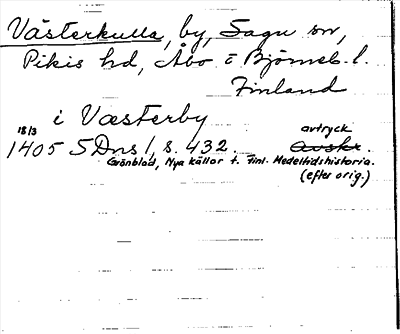 Västerkulla, by, Sagu sn,
Pikis hd, Åbo o Björneb. l.
Finland
i Væsterby
18/3 avtryck
1405 SDns 1, s. 432. Avskr.
Grönblad, Nya källor t. Finl. Medeltidshistoria.
(efter orig.)